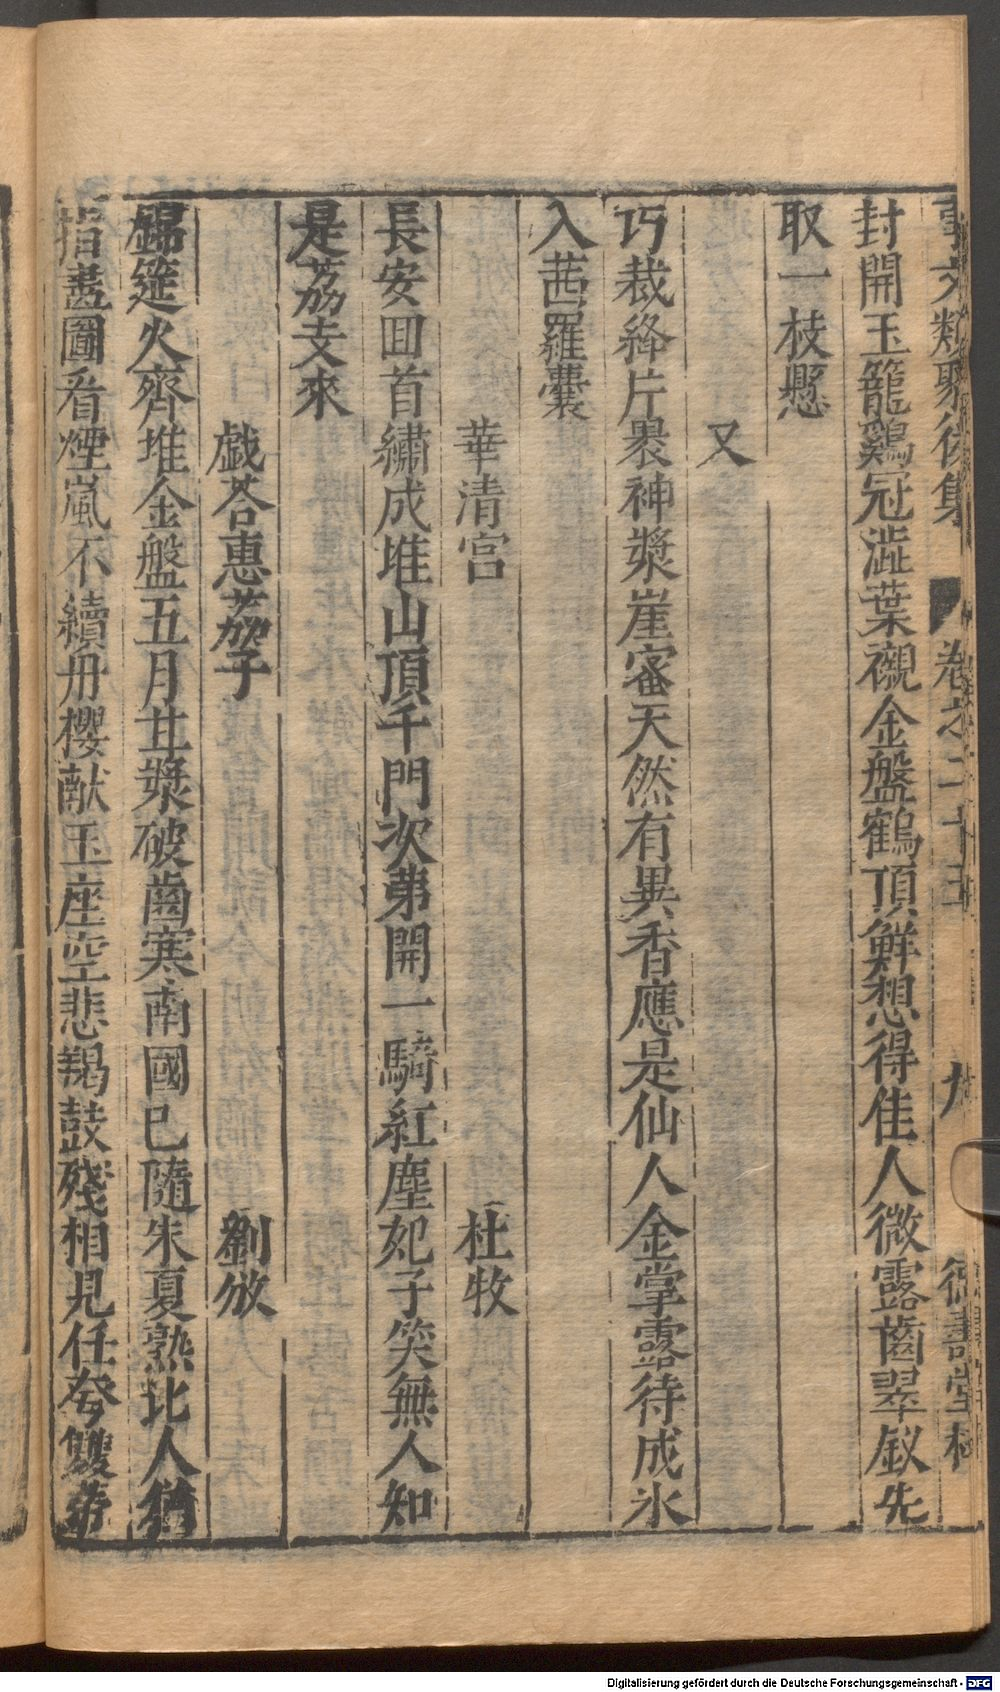 事文類聚後集 卷之二十五 九 德壽堂梓
封開玉籠鷄冠澁葉襯金盤鶴頂鮮想得佳人微露齒翠釵先
取一枝懸
又
巧裁絳片裹神漿崖蜜天然有異香應是仙人金掌露待成氷
入茜羅囊
華清宮 杜牧
長安囬首繡成堆山頂千門次第開一騎紅塵妃子笑無人知
是荔支來
戯荅惠荔子 劉攽
錦筵火齊堆金盤五月甘漿破齒寒南國已隨朱夏熟比人猶
指畵圖看煙嵐不續丹櫻献玉座空悲羯鼓殘相見任夸雙蒂
Digitalisierung gefördert durch die Deutsche Forschungsgemeinschaft - DFG